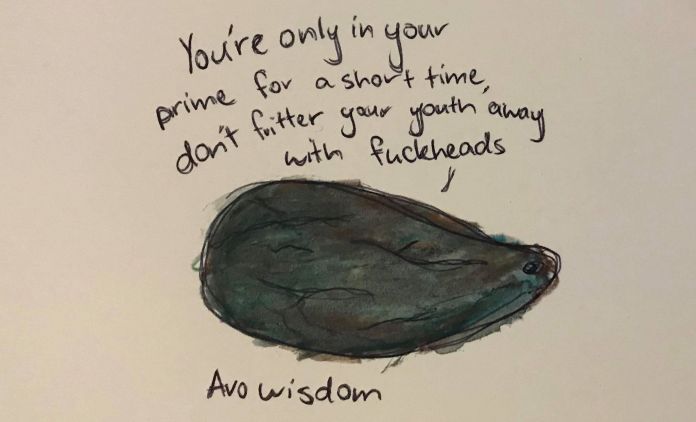 You're only in your
prime for a short time,
don't fritter your youth away
with fuckheads
Avo wisdom